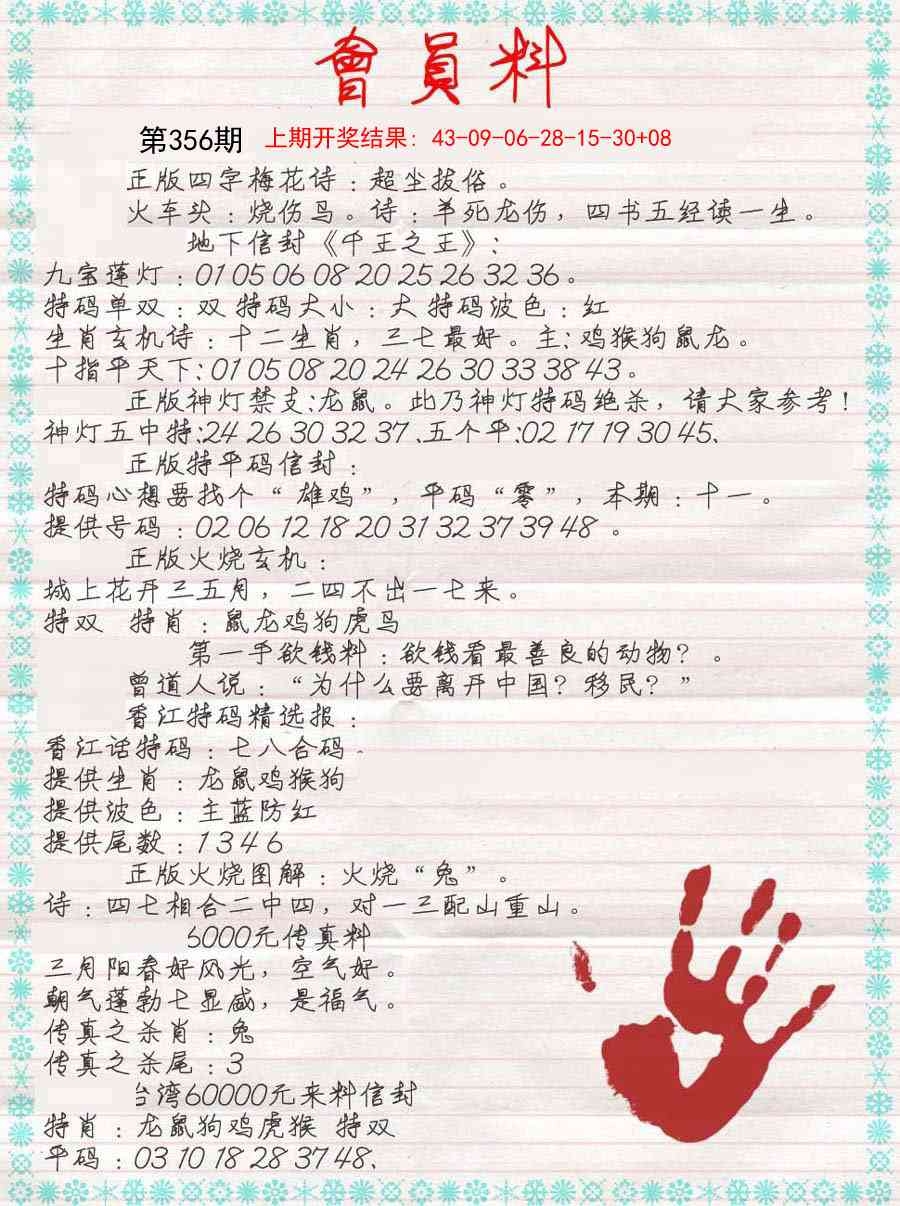 會員料
第356期 上期开奖结果: 43-09-06-28-15-30+08
正版四字梅花诗：超尘拔俗。
火车头：烧伤鸟。诗：羊死龙伤，四书五经读一生。
地下信封《千王之王》：
九宝莲灯：01 05 06 08 20 25 26 32 36。
特码单双：双 特码大小：大 特码波色：红
生肖玄机诗：十二生肖，三七最好。主：鸡猴狗鼠龙。
十指平天下：01 05 08 20 24 26 30 33 38 43。
正版神灯禁支：龙鼠。此乃神灯特码绝杀，请大家参考！
神灯五中特：24 26 30 32 37、五个平：02 17 19 30 45、
正版特平码信封：
特码心想要找个“雄鸡”，平码“零”，本期：十一。
提供号码：02 06 12 18 20 31 32 37 39 48 。
正版火烧玄机：
城上花开三五月，二四不出一七来。
特双 特肖：鼠龙鸡狗虎鸟
第一手欲钱料：欲钱看最善良的动物？。
曾道人说：“为什么要离开中国？移民？”
香江特码精选报：
香江话特码：七八合码。
提供生肖：龙鼠鸡猴狗
提供波色：主蓝防红
提供尾数：1 3 4 6
正版火烧图解：火烧“兔”。
诗：四七相合二中四，对一三配山重山。
6000元传真料
三月阳春好风光，空气好。
朝气蓬勃七显威，是福气。
传真之杀肖：兔
传真之杀尾：3
台湾60000元来料信封
特肖：龙鼠狗鸡虎猴 特双
平码：03 10 18 28 37 48、